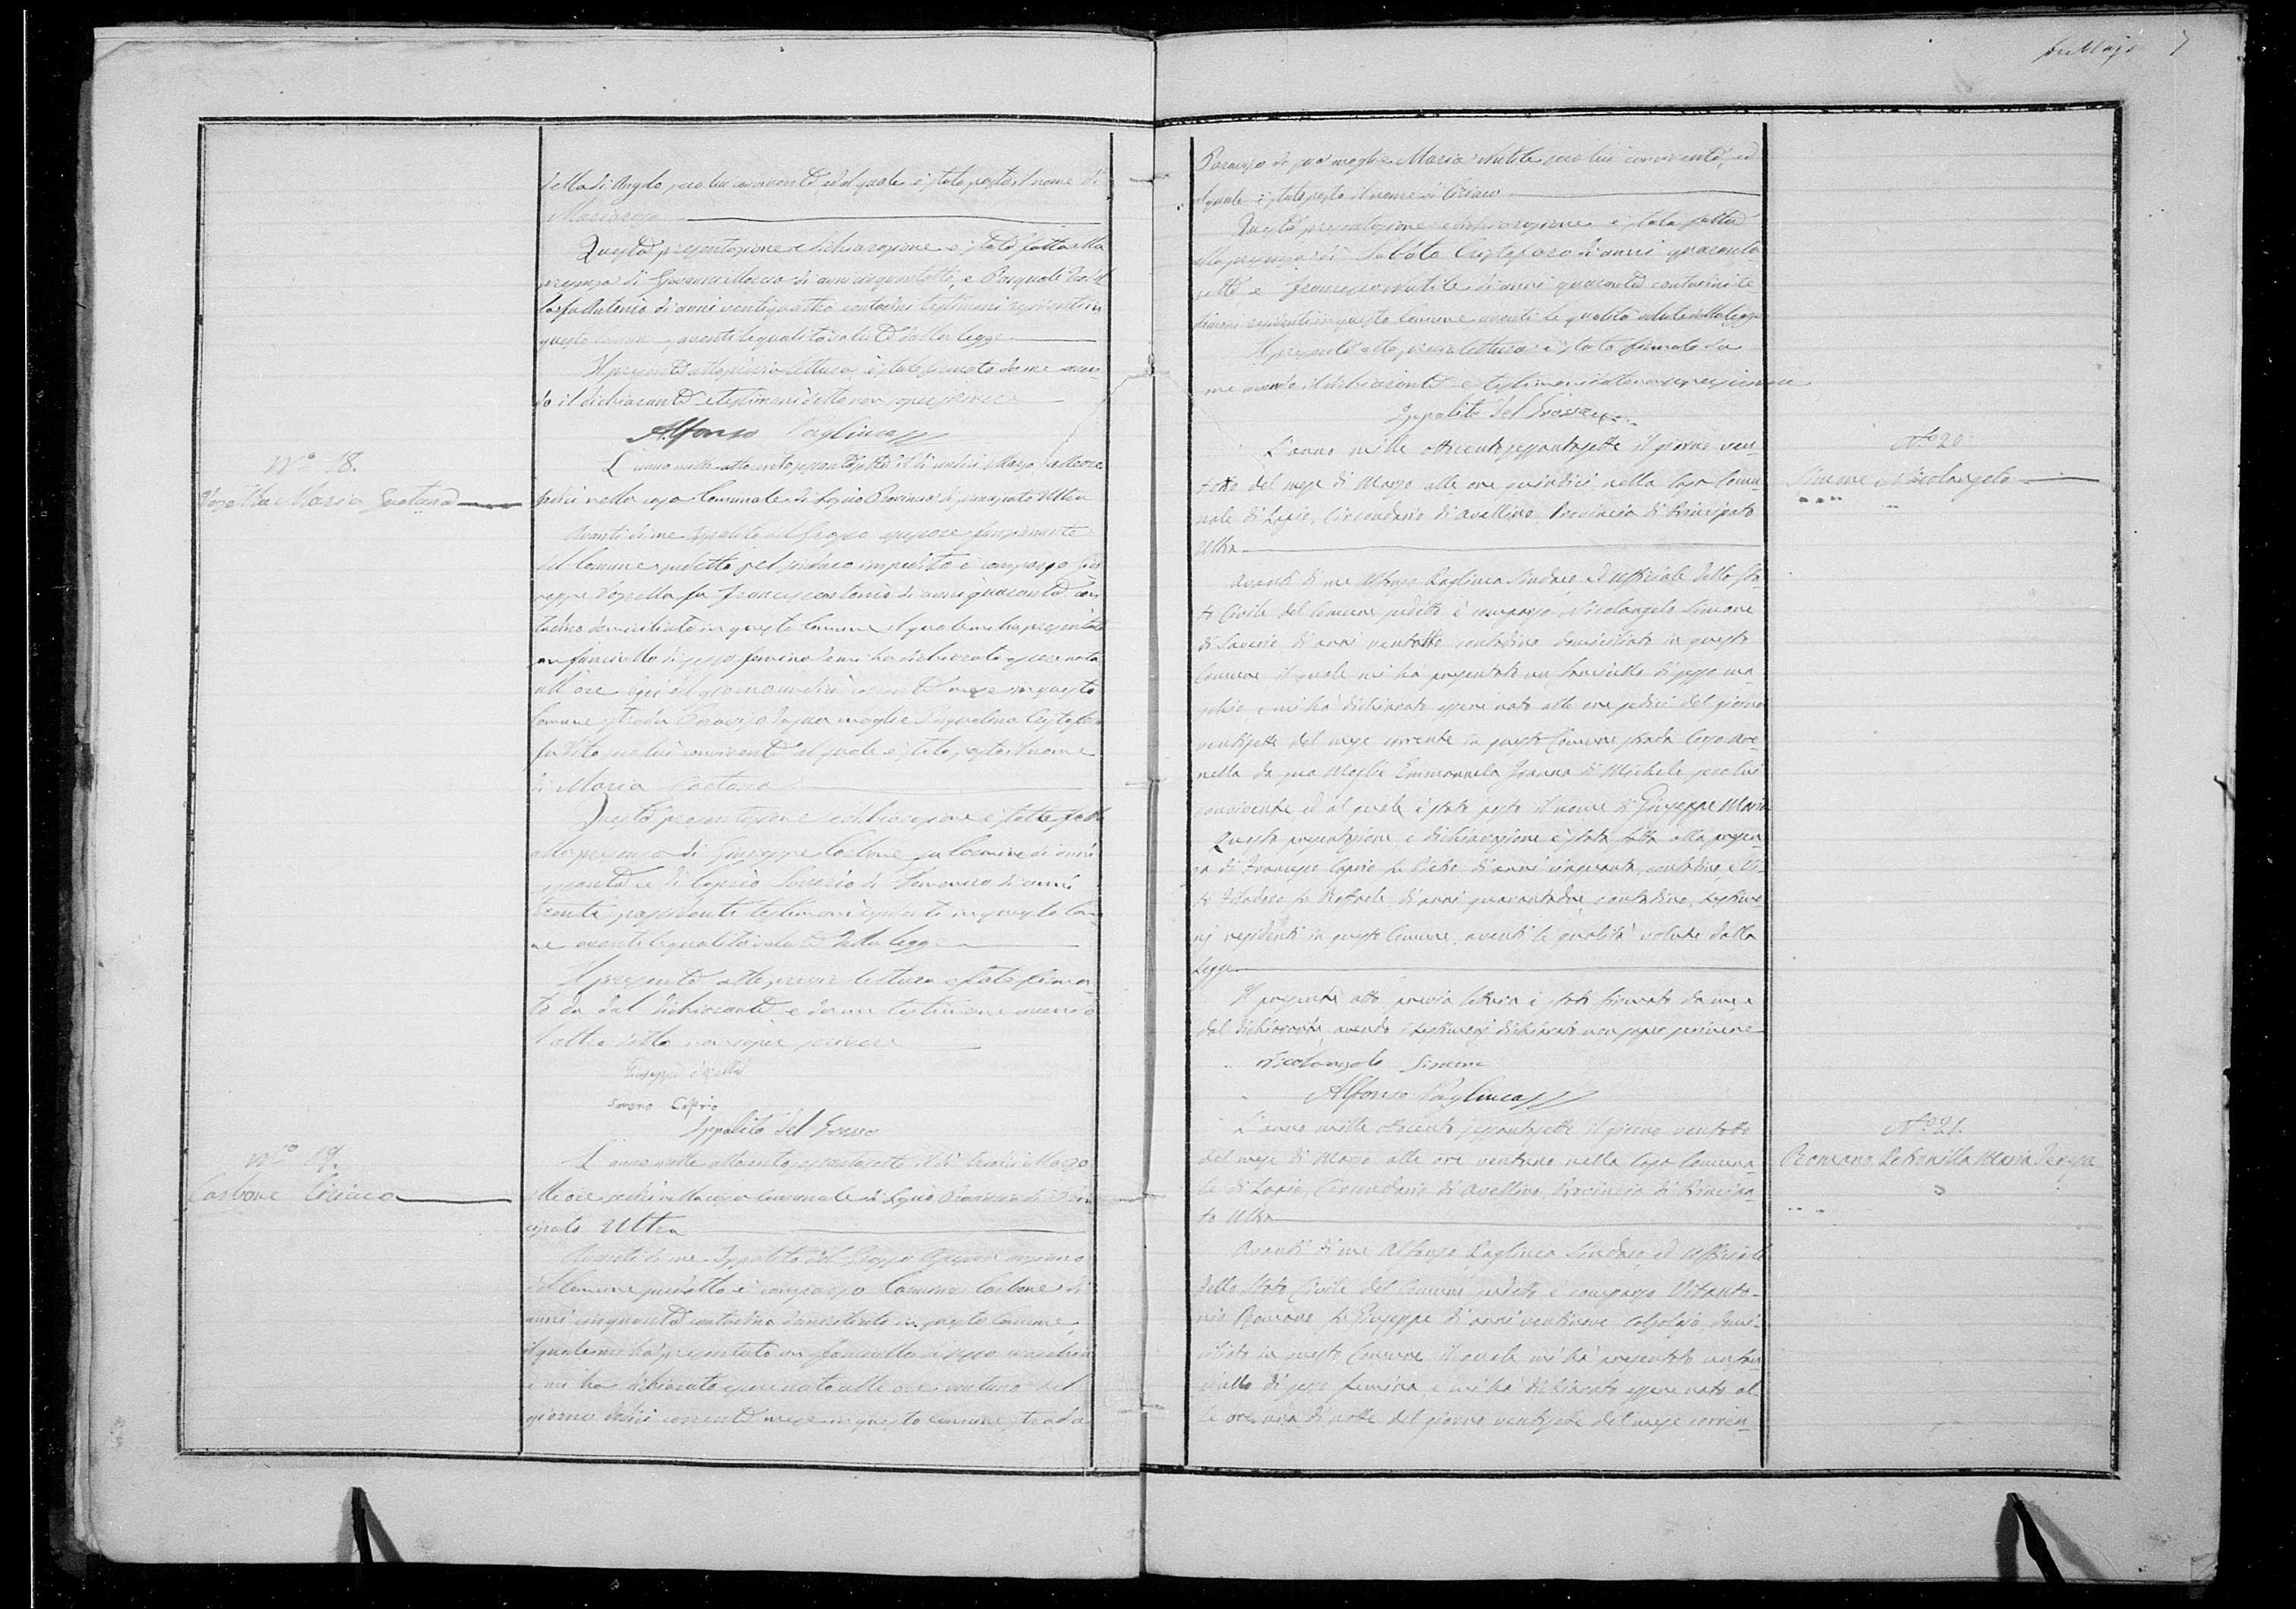 7
della di Angelo seco lui convivente ed al quale è stato posto il nome di
Mariarosa
Questa presentazione e dichiarazione è stata fatta alla
presenza di Giovanni di anni cinquantotto, e Pasquale
fu Antonio di anni ventiquattro contadini testimoni residenti in
questo Comune, aventi le qualità volute dalla legge
Il presente atto previa lettura è stato firmato da me aven-
do il dichiarante e testimoni detto non saper scrivere
Alfonso Pagliuca
N.º 18.
Maria Gaetana
L'anno mille ottocento sessantasette il dì undici Marzo alle ore
sedici nella casa Comunale di Lapio Provincia di Principato Ultra
Avanti di me Ippolito del Grosso Assessore funzionante
del Comune suddetto pel sindaco impedito è comparso Giu
seppe fu Francescantonio di anni quaranta con
tadino domiciliato in questo Comune il quale mi ha presentato
un fanciullo di sesso feminino e mi ha dichiarato essere nata
all'ore del giorno undici corrente mese in questo
Comune strada Paraviso da sua moglie Pasqualina Cristofaro
fu Vito seco lui convivente al quale è stato posto il nome
di Maria Gaetana
Questa presentazione e dichiarazione è stata fatta
alla presenza di Giuseppe Carbone fu Carmine di anni
e di Caprio Saverio di di anni
trenta possidente testimoni residenti in questo Comu
ne aventi le qualità volute dalla legge
Il presente atto previa lettura è stato firma-
to da dal dichiarante e da un testimone avendo
l'altro detto non saper scrivere
Giuseppe
Saverio Caprio
Ippolito del Grosso
N.º 19.
Carbone Ciriaco
L'anno mille ottocento sessantasette il dì tredici Marzo
alle ore sedici nella casa Comunale di Lapio Provincia di Prin
cipato Ultra
Avanti di me Ippolito del Grosso Assessore anziano
del Comune suddetto è comparso Carmine Carbone di
anni cinquanta contadino domiciliato in questo Comune,
il quale mi ha presentato un fanciullo di sesso maschio
e mi ha dichiarato essere nato alle ore ventuno del
giorno dodici corrente mese in questo Comune strada
Paraviso da sua moglie Maria Nutile seco lui convivente, ed
al quale è stato posto il nome di Ciriaco
Questa presentazione e dichiarazione è stata fatta
alla presenza di Sabato Cristofaro di anni quaranta
sette e Francesco Nutile di anni quaranta contadini te
stimoni residenti in questo Comune aventi le qualità volute dalla legge
Il presente atto, previa lettura è stato firmato da
me avendo il dichiarante e testimoni detto non saper scrivere
Ippolito del Grosso
N.º 20.
Simone Nicolangelo
L'anno mille ottocentosessantasette il giorno ven-
totto del mese di Marzo alle ore quindici nella Casa Comu-
nale di Lapio, Circondario di Avellino, Provincia di Principato
Ultra
Avanti di me Alfonso Pagliuca Sindaco, ed Uffiziale dello Sta-
to Civile del Comune sudetto è comparso Nicolangelo Simone
di Saverio di anni ventotto contadino domiciliato in questo
Comune il quale mi ha presentato un fanciullo di sesso ma-
schio e mi ha dichiarato essere nato alle ore sedici del giorno
ventisette del mese corrente in questo Comune strada Capo Are-
nella da sua Moglie Emmanuela di Michele seco lui
convivente ed al quale è stato posto il nome di Giuseppe Maria
Questa presentazione e dichiarazione è stata fatta alla presen-
za di Francesco Caprio fu Pietro di anni cinquanta, contadino, e Vi-
to fu Raffaele di anni quarantadue contadino, testimo-
nj residenti in questo Comune, aventi le qualità volute dalla
Legge
Il presente atto previa lettura è stato firmato da me, e
dal dichiarante, avendo i testimonj dichiarato non saper scrivere
Nicolangelo Simone
Alfonso Pagliuca
N.º 21.
Romano Petronilla Maria Teresa
L'anno mille ottocento sessantasette il giorno ventotto
del mese di Marzo alle ore ventuno nella Casa Comuna-
le di Lapio, Circondario di Avellino, Provincia di Principa-
to Ultra
Avanti di me Alfonso Pagliuca Sindaco, ed Uffiziale
dello Stato Civile del Comune sudetto, è comparso Vitanto-
nio Romano fu Giuseppe di anni ventinove Calzolajo, domi-
ciliato in questo Comune, il quale mi ha presentato un fan-
ciullo di sesso femina, e mi ha dichiarato essere nato al-
le ore una di notte del giorno ventisette del mese corren-